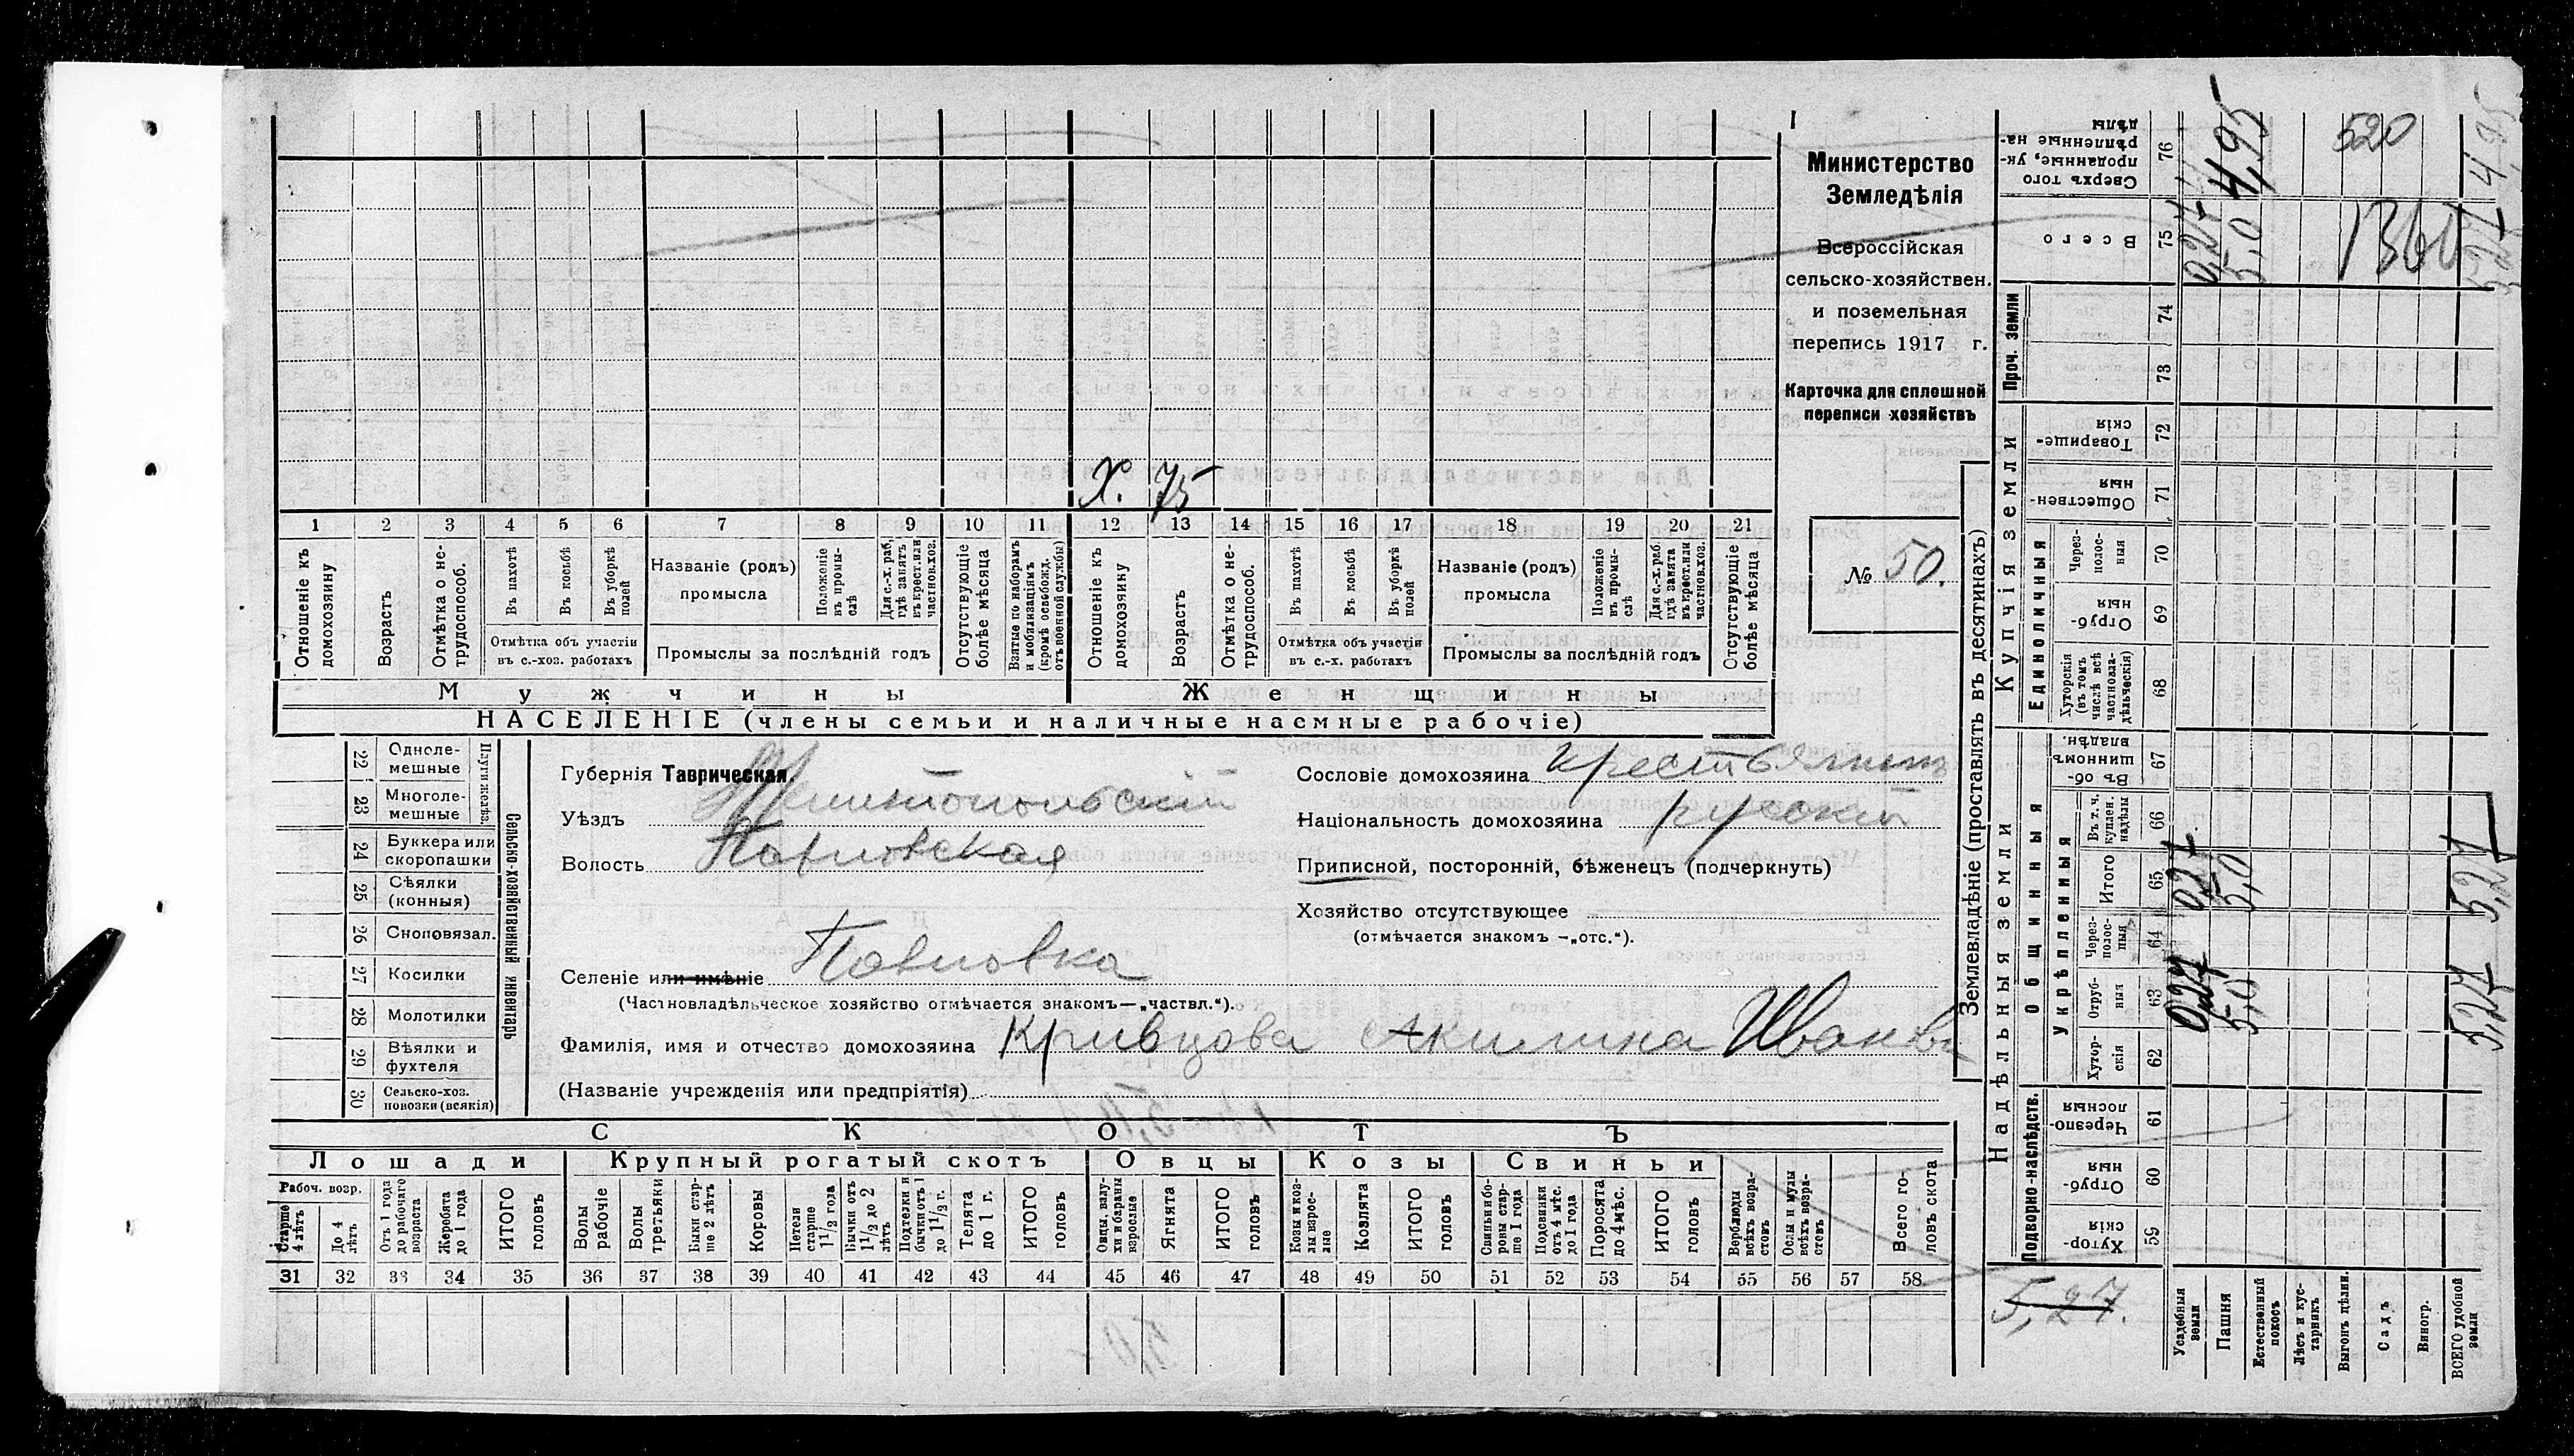 Х. 75
1 2 3 4 5 6 7 8 9 10 11 12 13 14 15 16 17 18 19 20 21
Отношеніе къ домохозяину
Возрастъ
Отмѣтка о не-
трудоспособ.
Въ пахотѣ
Въ косьбѣ
Въ уборкѣ полей
Отмѣтка объ участіи
въ с.-хоз. работахъ
Названіе (родъ)
промысла
Положеніе въ промы-
слѣ
Для с.-х. раб. гдѣ занятъ въ крест. или частнов. хоз.
Промыслы за послѣдній годъ
Отсутствующіе болѣе мѣсяца
Взятые по наборамъ и мобилизаціямъ (кромѣ освобожд. отъ военной службы)
Отношеніе къ домохозяину
Возрастъ
Отмѣтка о не-
трудоспособ.
Въ пахотѣ
Въ косьбѣ
Въ уборкѣ полей
Отмѣтка объ участіи
въ с.-х. работахъ
Названіе (родъ)
промысла
Положеніе въ промы-
слѣ
Для с.-х. раб. гдѣ занята въ крест. или частнов. хоз.
Промыслы за послѣдній годъ
Отсутствующіе болѣе мѣсяца
Мужчины
Женщины
НАСЕЛЕНІЕ (члены семьи и наличные наемные рабочіе)
Министерство
Земледѣлія
Всероссійская
сельско-хозяйствен.
и поземельная
перепись 1917 г.
Карточка для сплошной
переписи хозяйствъ
№ 50.
22 Одноле-
мешные
23 Многоле-
мешные
Плуги желѣз.
24 Буккера или
скоропашки
25 Сѣялки
(конныя)
26 Сноповязал.
27 Косилки
28 Молотилки
29 Вѣялки и
фухтеля
30 Сельско-хоз.
повозки (всякія)
Сельско-хозяйственный инвентарь
Губернія Таврическая.
Уѣздъ Мелитопольскій
Волость Павловская
Селеніе или имѣніе Павловка
(Частновладѣльческое хозяйство отмѣчается знакомъ—„частвл.“).
Фамилія, имя и отчество домохозяина Кривцова Акилина Иванов
(Названіе учрежденія или предпріятія)
Сословіе домохозяина крестьянинъ
Національность домохозяина русскій
Приписной, посторонній, бѣженецъ (подчеркнуть)
Хозяйство отсутствующее
(отмѣчается знакомъ —„отс.“).
СКОТЪ
Лошади
Крупный рогатый скотъ
Овцы
Козы
Свиньи
Рабоч. возр.
Старше 4 лѣтъ
До 4 лѣтъ
Отъ 1 года до рабочаго возраста
Жеребята до 1 года
ИТОГО головъ
Волы рабочіе
Волы третьяки
Быки стар-
ше 2 лѣтъ
Коровы
Нетели старше 1 1/2 года
Бычки отъ 1 1/2 до 2 лѣтъ
Подтелки и бычки отъ 1 до 1 1/2 г.
Телята до 1 г.
ИТОГО головъ
Овцы, валу-
хи и бараны взрослые
Ягнята
ИТОГО головъ
Козы и коз-
лы взрос-
лые
Козлята
ИТОГО головъ
Свиньи и бо-
ровы стар-
ше 1 года
Подсвинки отъ 4 мѣс. до 1 года
Поросята до 4 мѣс.
ИТОГО головъ
Верблюды всѣхъ возра-
стовъ
Ослы и мулы всѣхъ возра-
стовъ
Всего го-
ловъ скота
31 32 33 34 35 36 37 38 39 40 41 42 43 44 45 46 47 48 49 50 51 52 53 54 55 56 57 58
Землевладѣніе (проставлять въ десятинахъ)
Купчія земли
Надѣльныя земли
Проч. земли
Единоличныя
Общинныя
Укрѣпленныя
Подворно-наслѣдств.
Сверхъ того проданные, ук-
рѣпленные на-
дѣлы 76 4,95 520 4,95
Всего 75 0,27 5,0 1360 5,27
74
73
Товарище-
скія 72
Обществен-
ныя 71
Через-
полос-
ныя 70
Отруб-
ныя 69
Хуторскія (въ томъ числѣ всѣ частновла-
дѣльческія) 68
Въ об-
щинномъ владѣн. 67
Въ т. ч. куплен. надѣлы 66
Итого 65 0,27 5,0 5,27
Через-
полос-
ныя 64
Отруб-
ныя 63 0,27 5,0 5,27
Хутор-
скія 62
Черезпо-
лосныя 61
Отруб-
ныя 60
Хутор-
скія 59
5,27.
Усадебныя земли
Пашня
Естественный покосъ
Лѣсъ и кус-
тарникъ
Выгонъ цѣлин.
Садъ
Виногр.
ВСЕГО удобной земли